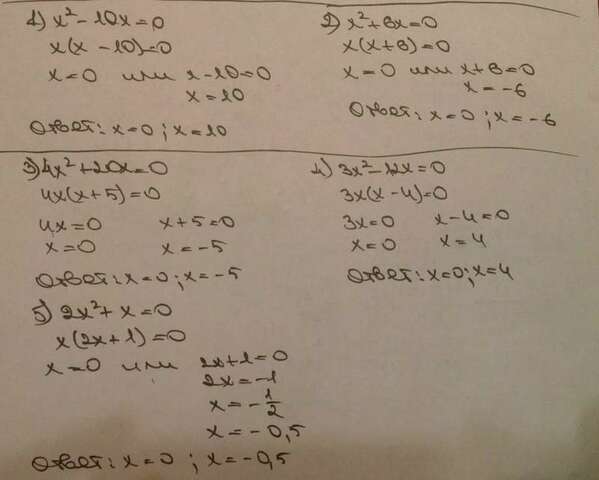 1) x² - 10x = 0
x(x - 10) = 0
x = 0 или x - 10 = 0
x = 10
Ответ: x = 0 ; x = 10
2) x² + 6x = 0
x(x + 6) = 0
x = 0 или x + 6 = 0
x = -6
Ответ: x = 0 ; x = -6
3) 4x² + 20x = 0
4x(x + 5) = 0
4x = 0 x + 5 = 0
x = 0 x = -5
Ответ: x = 0 ; x = -5
4) 3x² - 12x = 0
3x(x - 4) = 0
3x = 0 x - 4 = 0
x = 0 x = 4
Ответ: x = 0; x = 4
5) 2x² + x = 0
x(2x + 1) = 0
x = 0 или 2x + 1 = 0
2x = -1
x = -1/2
x = -0,5
Ответ: x = 0 ; x = -0,5